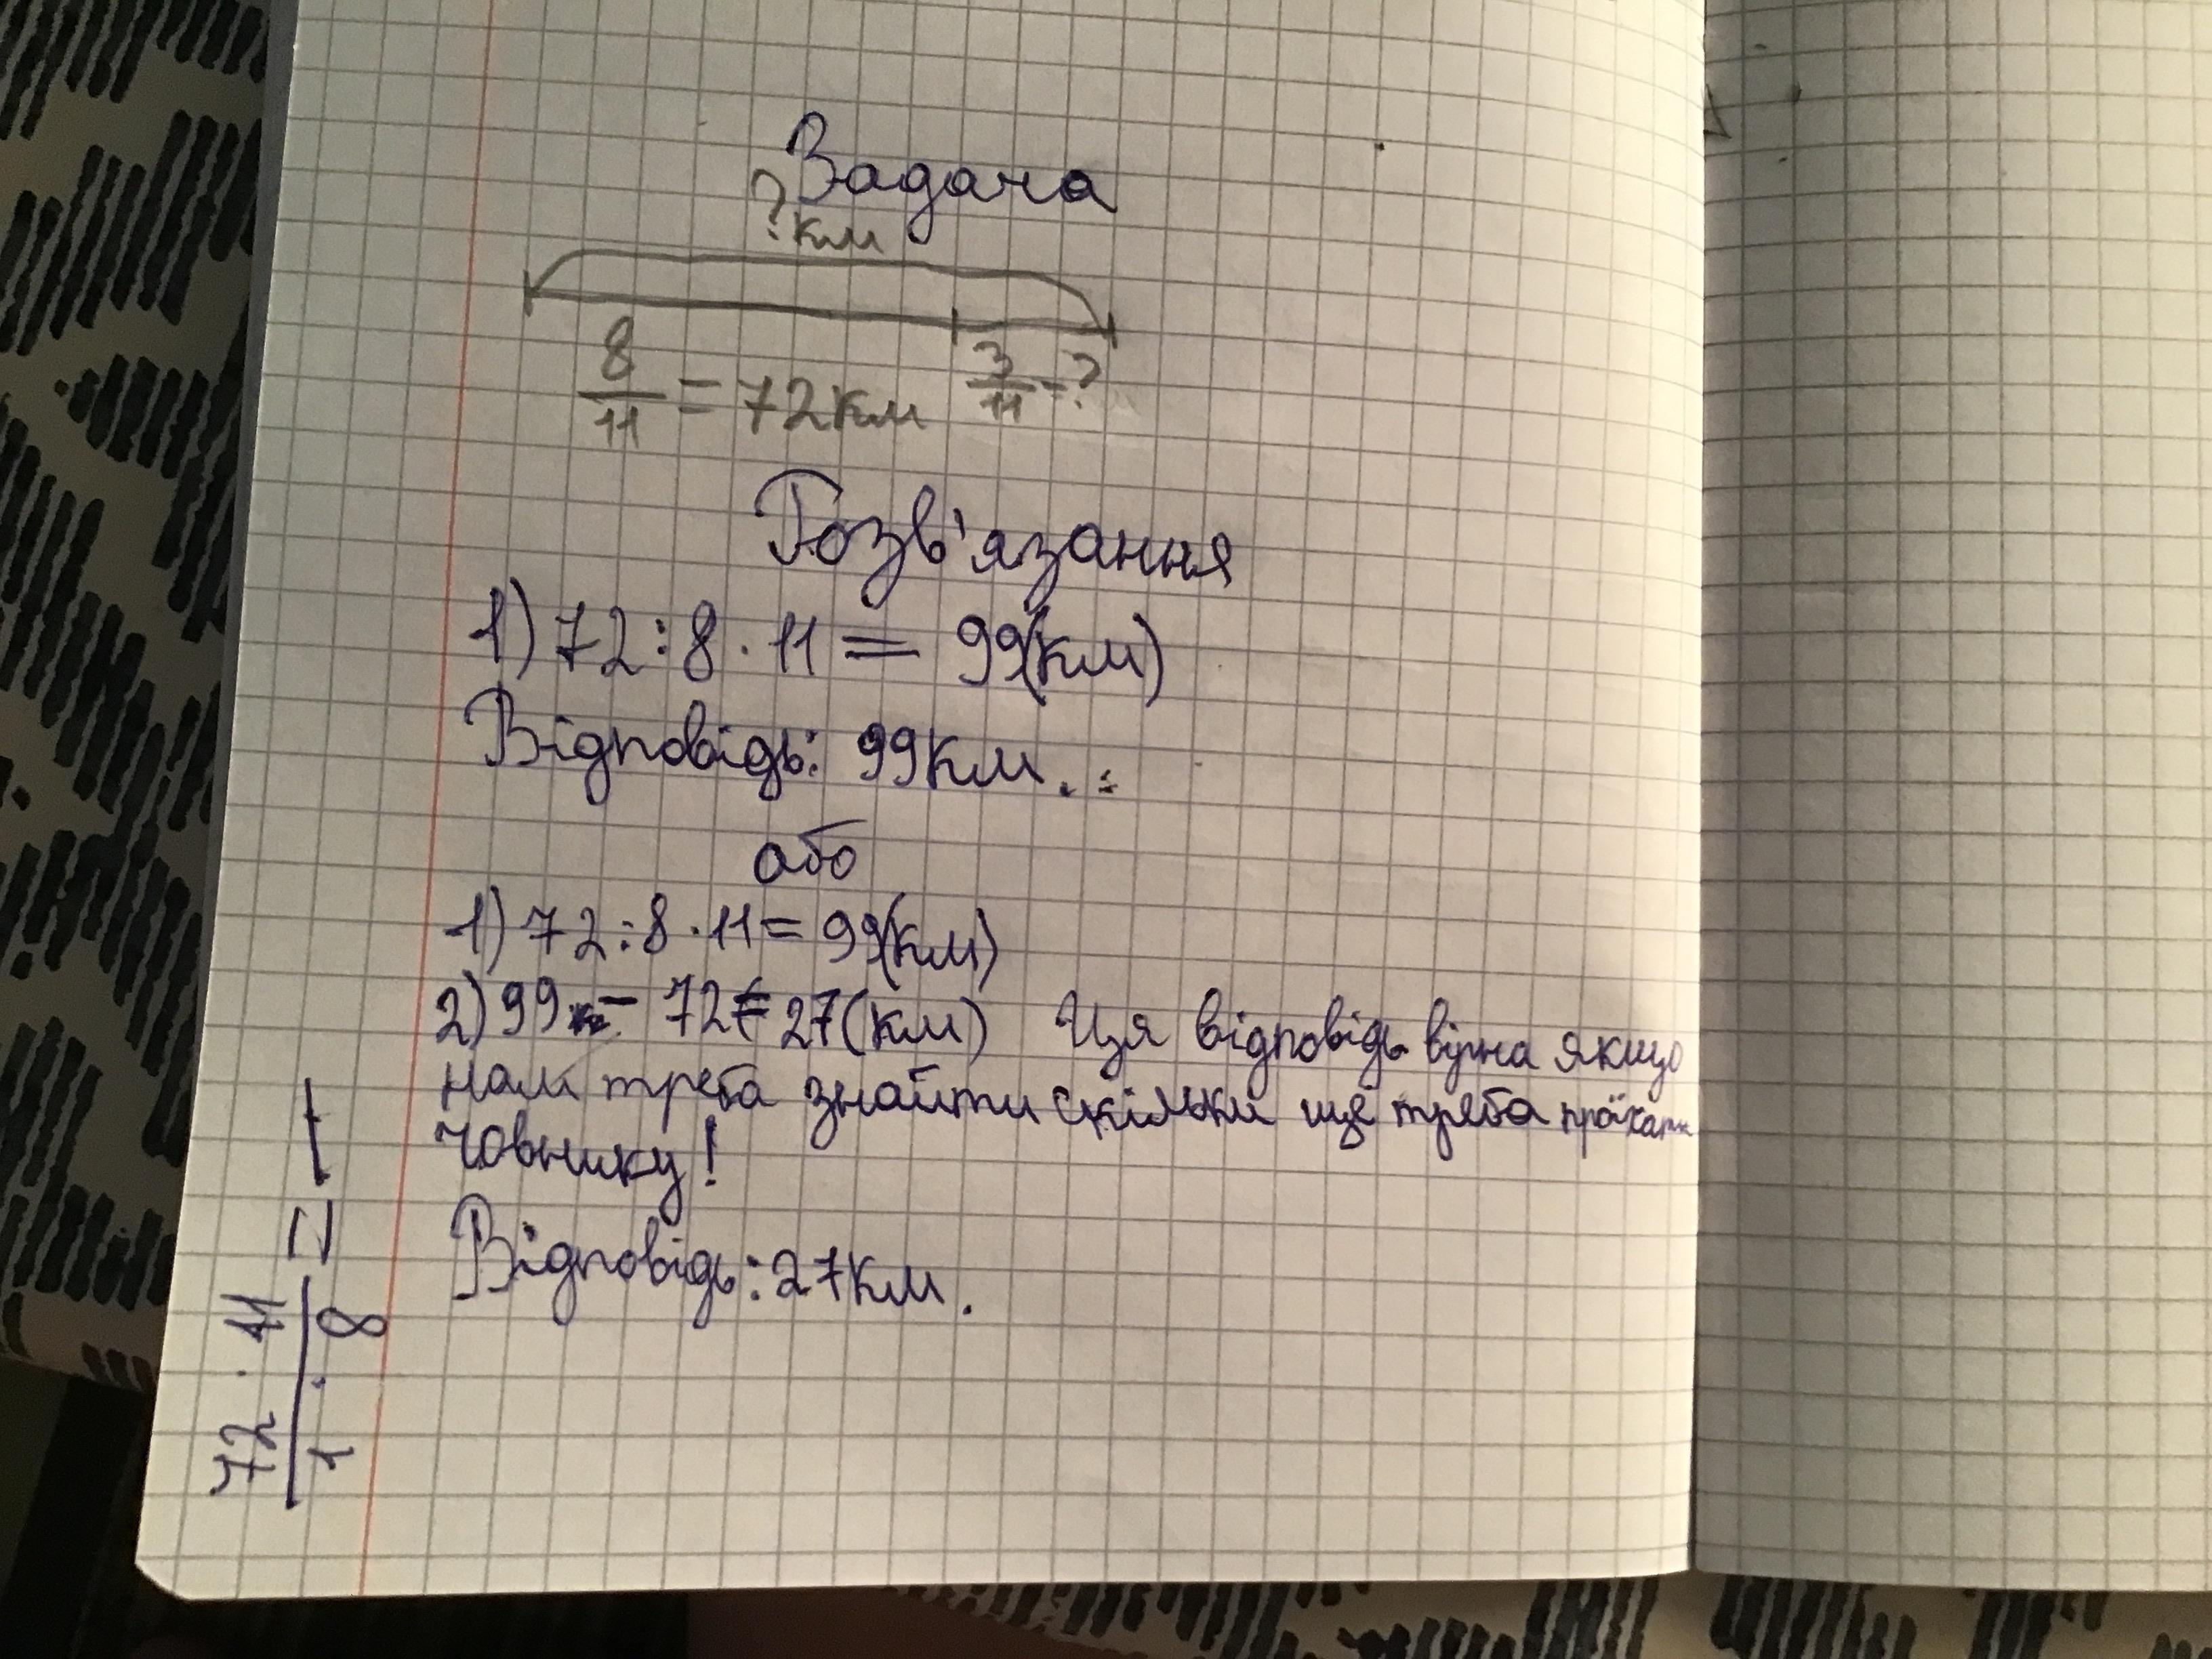 Задача
? км
8/11 = 72 км 3/11 - ?
Розв'язання
1) 72 : 8 · 11 = 99(км)
Відповідь: 99 км.
або
1) 72 : 8 · 11 = 99(км)
2) 99 - 72 = 27 (км) Ця відповідь вірна якщо
нам треба знайти скільки ще треба проїхати
човнику!
Відповідь: 27 км.
72 · 11 / 1 · 8 =